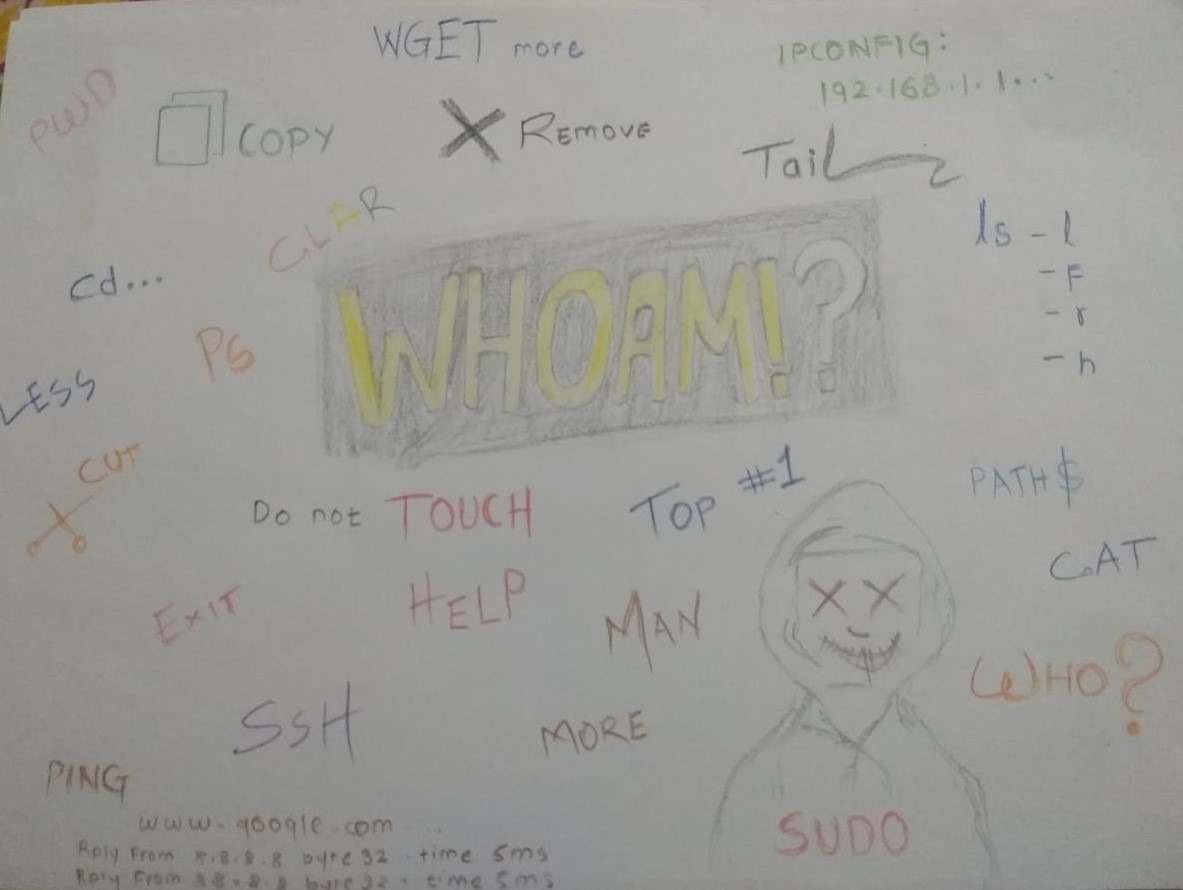 WGET more
IPCONFIG:
192.168.1.1...
PWD
COPY
X REMOVE
Tail
CLAR
ls -l
-F
-r
-h
cd...
WHOAM!?
PS
LESS
CUT
TOP #1
PATH$
Do not TOUCH
CAT
EXIT
HELP
MAN
X X
WHO?
SSH
MORE
PING
www.google.com
SUDO
Rply From 8.8.8.8 byte 32 . time 5ms
Rply From 8.8.8.8 byte 32 . time 5ms